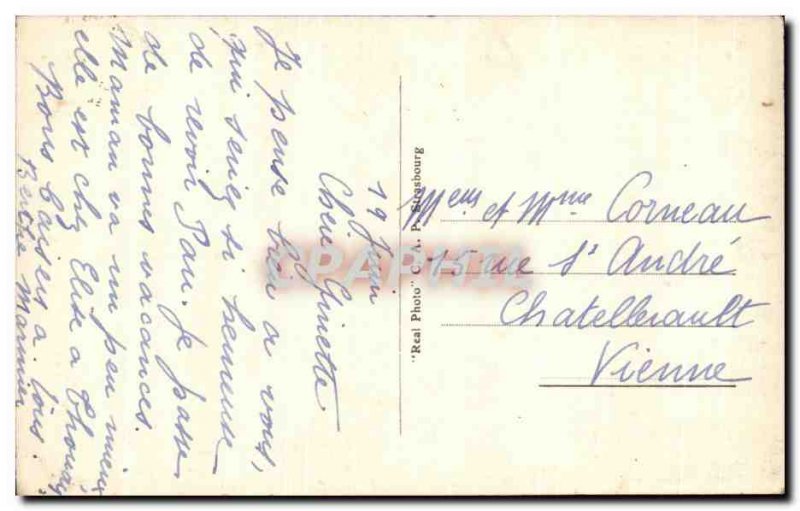 19 Juin
Chère Ginette
Je pense bien a vous,
qui seriez si heureuse
de revoir Pau. Je passe
de bonnes vacances.
Maman va un peu mieux
elle est chez Elise a Thouars
Bons baisers a tous.
Berthe Marinier
"Real Photo" C. A. P. Strasbourg
Meur et Mme Corneau
15 rue St André
Chatellerault
Vienne
CPAPHIL